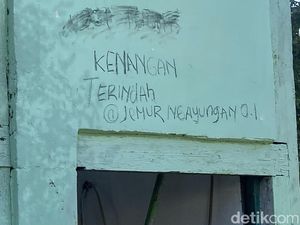 KENANGAN
TERINDAH
@ JEMUR NGAYUNGAN 0.1
detikcom